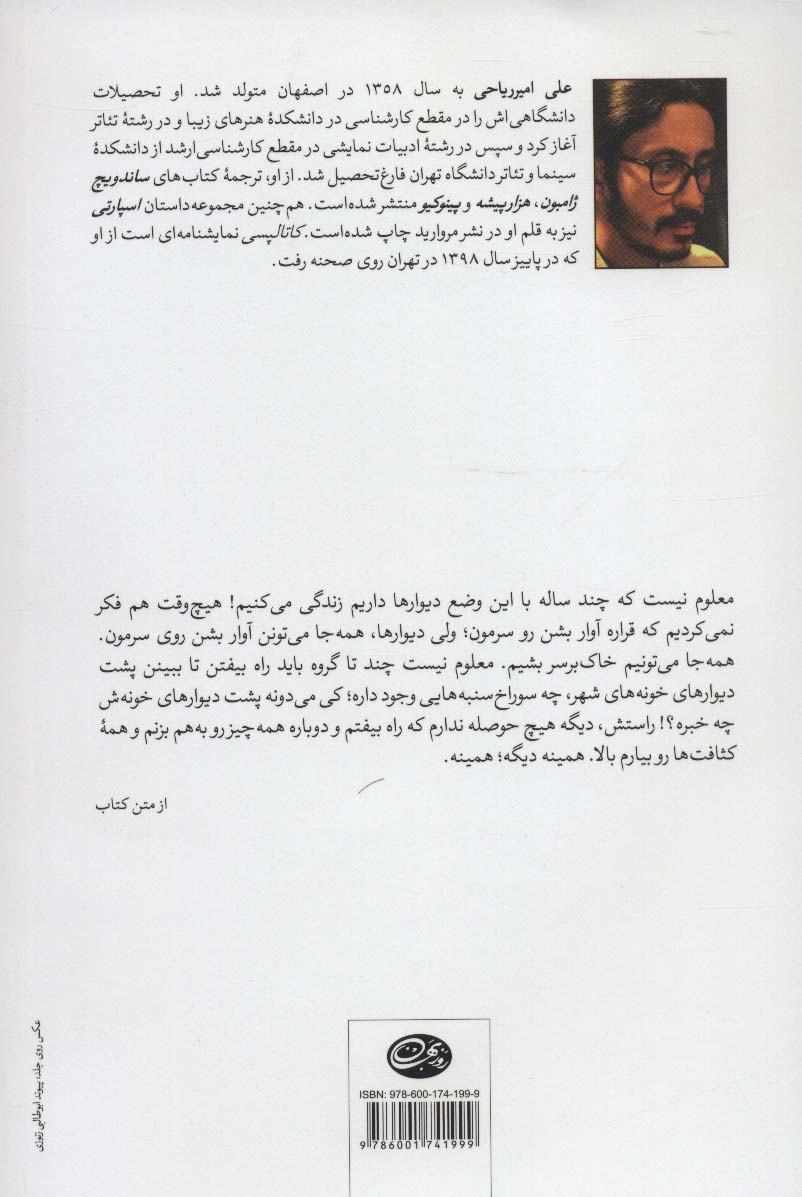 علی امیرریاحی به سال ۱۳۵۸ در اصفهان متولد شد. او تحصیلات
دانشگاهی‌اش را در مقطع کارشناسی در دانشکدهٔ هنرهای زیبا و در رشتهٔ تئاتر
آغاز کرد و سپس در رشتهٔ ادبیات نمایشی در مقطع کارشناسی‌ارشد از دانشکدهٔ
سینما و تئاتر دانشگاه تهران فارغ‌تحصیل شد. از او، ترجمهٔ کتاب‌های ساندویچ
ژامبون، هزارپیشه و پینوکیو منتشر شده‌است. هم‌چنین مجموعه‌داستان اسپارتی
نیز به قلم او در نشر مروارید چاپ شده‌است. کاتالپسی نمایشنامه‌ای است از او
که در پاییز سال ۱۳۹۸ در تهران روی صحنه رفت.
معلوم نیست که چند ساله با این وضع دیوارها داریم زندگی می‌کنیم! هیچ‌وقت هم فکر
نمی‌کردیم که قراره آوار بشن رو سرمون؛ ولی دیوارها، همه‌جا می‌تونن آوار بشن روی سرمون.
همه‌جا می‌تونیم خاک‌برسر بشیم. معلوم نیست چند تا گروه باید راه بیفتن تا ببینن پشت
دیوارهای خونه‌های شهر، چه سوراخ‌سنبه‌هایی وجود داره؛ کی می‌دونه پشت دیوارهای خونه‌ش
چه خبره؟! راستش، دیگه هیچ حوصله ندارم که راه بیفتم و دوباره همه‌چیز رو به‌هم بزنم و همهٔ
کثافت‌ها رو بیارم بالا. همینه دیگه؛ همینه.
از متن کتاب
عکس روی جلد: پیوند ابوطالبی زنوزی
روزبهان
ISBN: 978-600-174-199-9
9 786001 741999